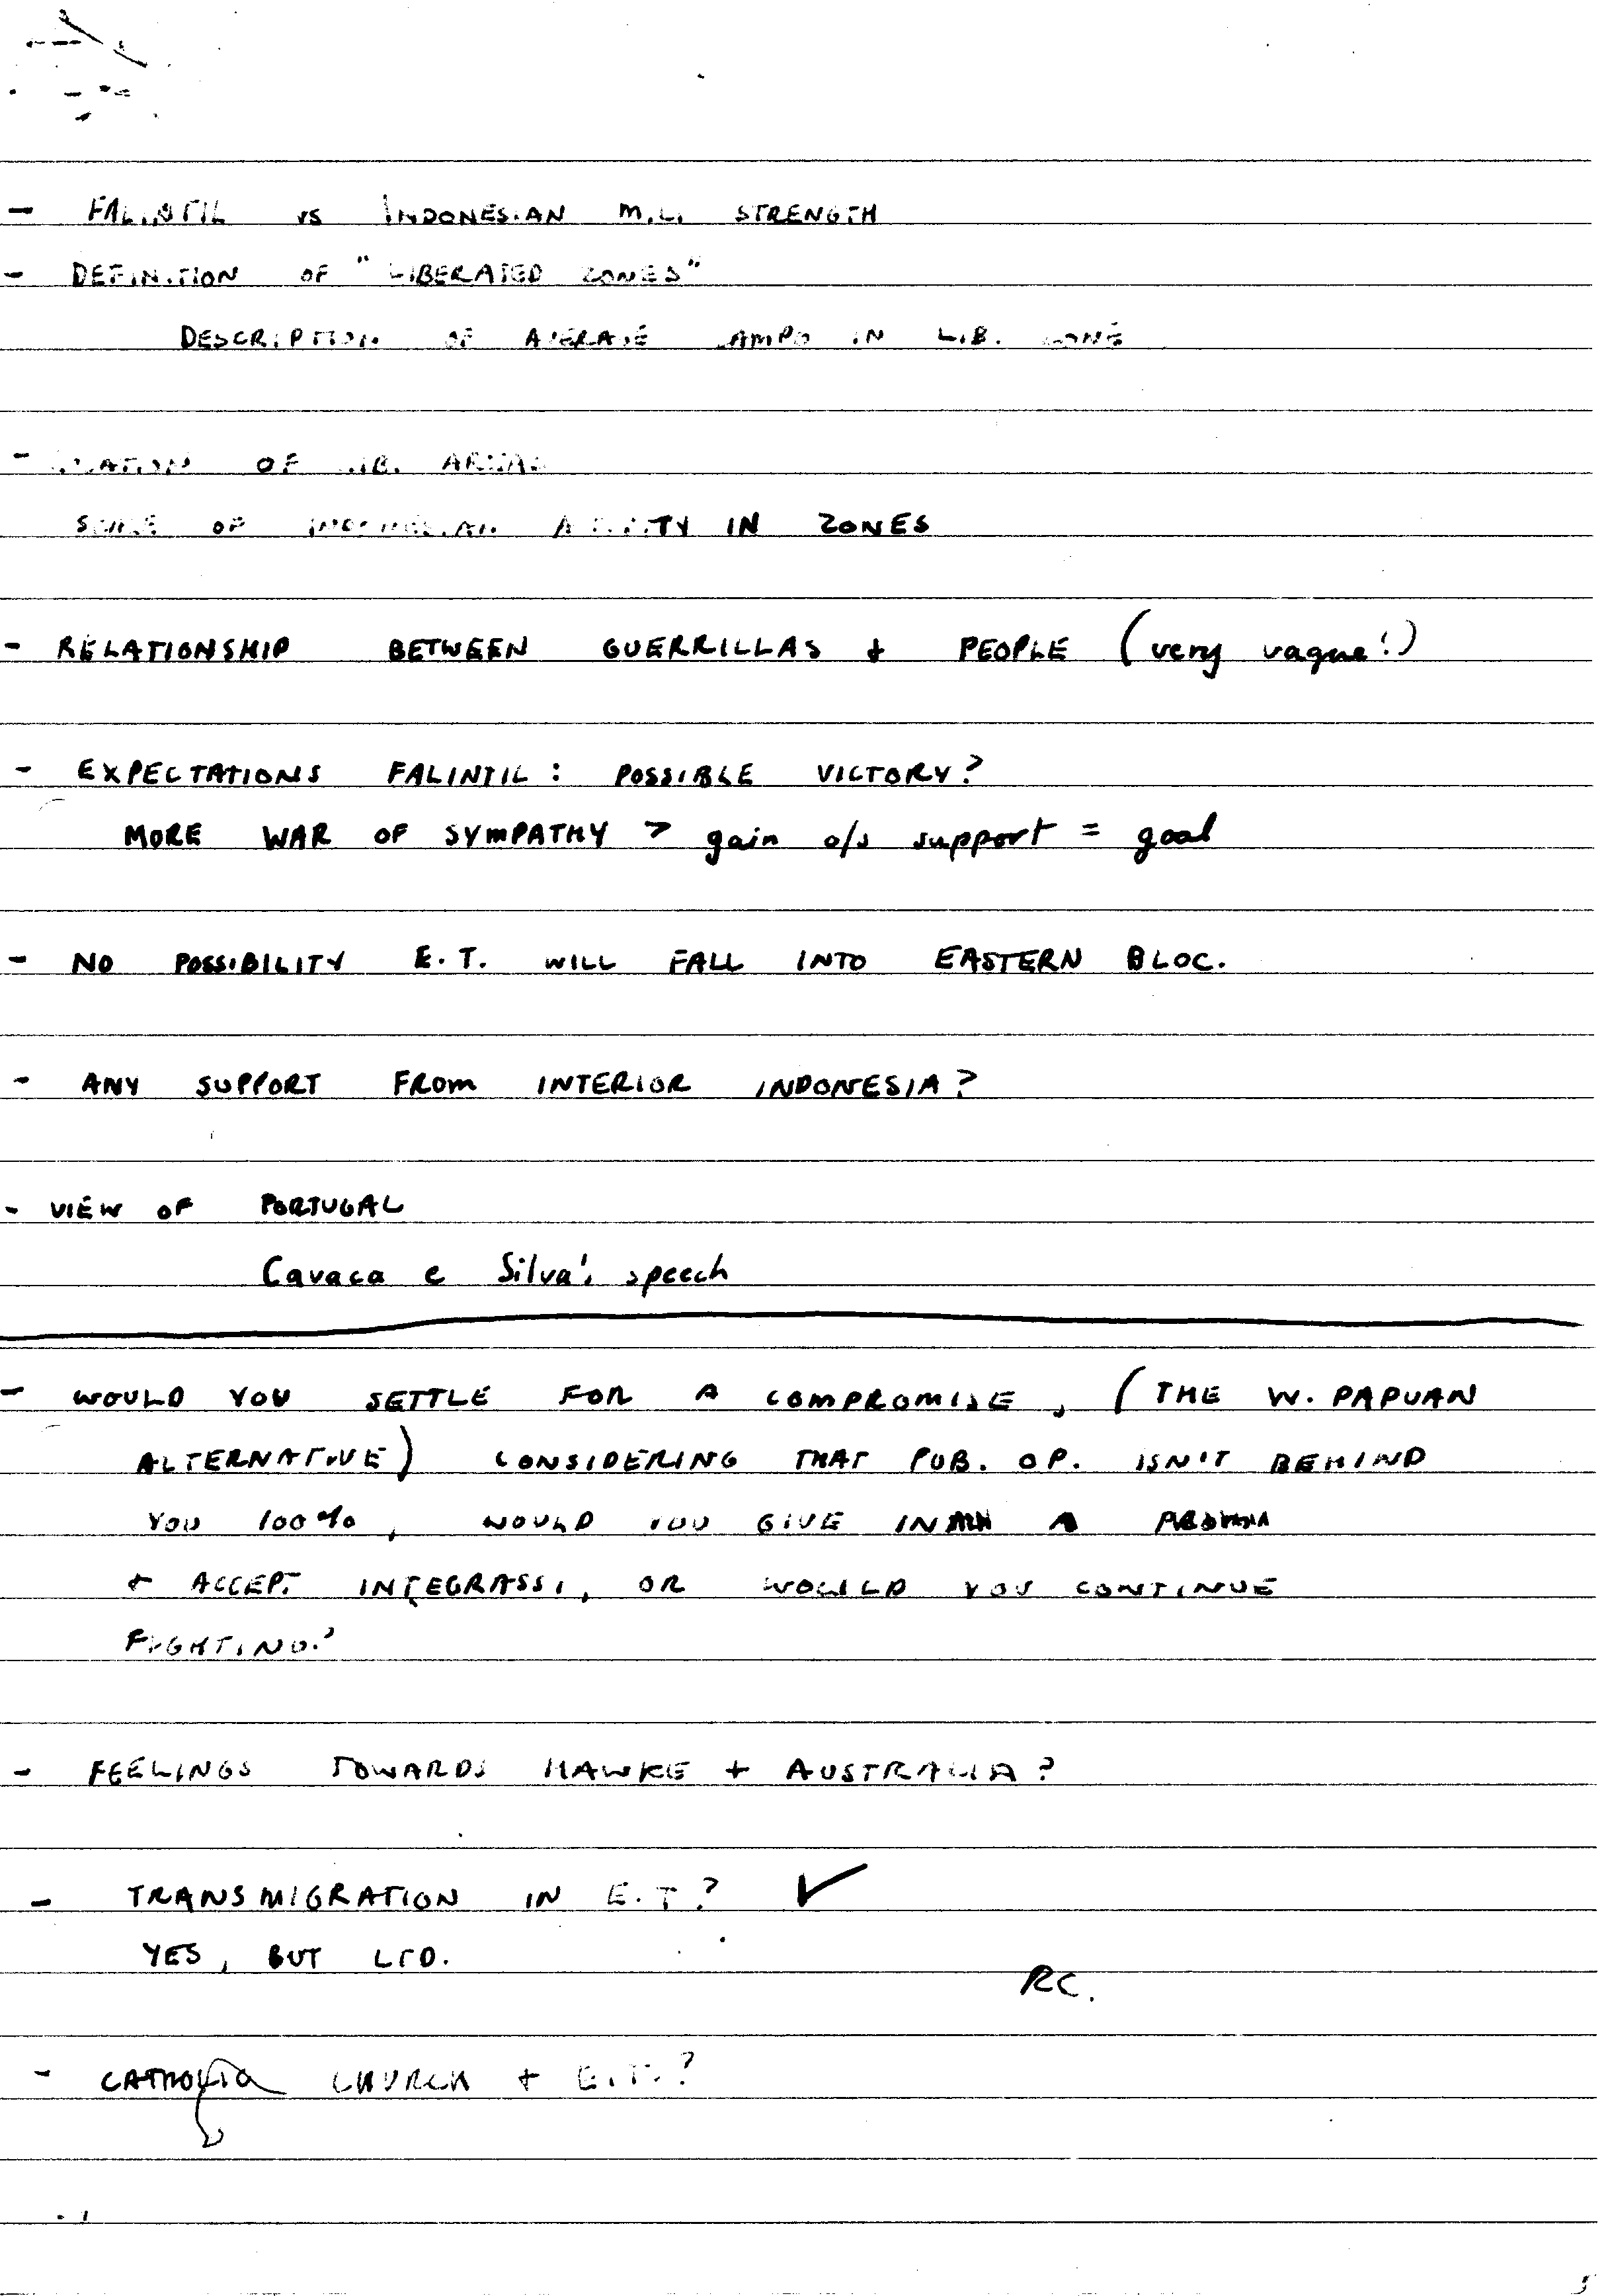 - FALINTIL vs INDONESIAN MIL. STRENGTH
- DEFINITION OF "LIBERATED ZONES"
DESCRIPTION OF AVERAGE CAMPO IN LIB. ZONE
- LOCATION OF LIB. AREAS
OF INDONESIAN ACTIVITY IN ZONES
- RELATIONSHIP BETWEEN GUERRILLAS + PEOPLE (very vague!)
- EXPECTATIONS FALINTIL: POSSIBLE VICTORY?
MORE WAR OF SYMPATHY > gain o/s support = goal
- NO POSSIBILITY E.T. WILL FALL INTO EASTERN BLOC.
- ANY SUPPORT FROM INTERIOR INDONESIA?
- VIEW OF PORTUGAL
Cavaca e Silva's speech
- WOULD YOU SETTLE FOR A COMPROMISE, (THE W. PAPUAN
ALTERNATIVE) CONSIDERING THAT PUB. OP. ISN'T BEHIND
YOU 100%, WOULD YOU GIVE IN
+ ACCEPT INTEGRASSI, OR WOULD YOU CONTINUE
FIGHTING?
- FEELINGS TOWARDS HAWKE + AUSTRALIA?
- TRANSMIGRATION IN E.T? ✓
YES, BUT LTD.
RC.
- CHURCH + E.T.?